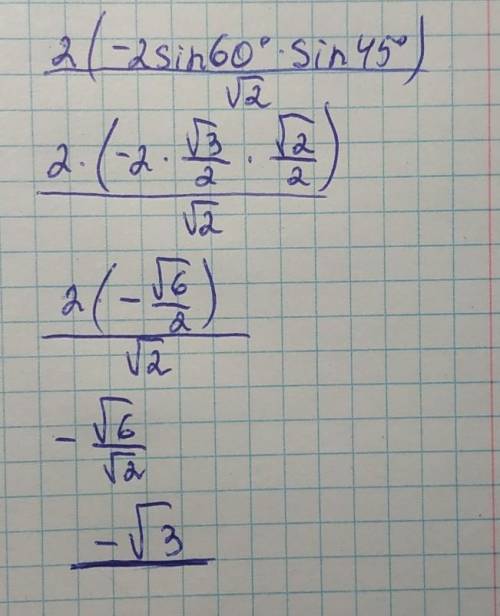 2(-2sin60°·sin45°)
√2
2·(-2·√3/2·√2/2)
√2
2(-√6/2)
√2
-√6/√2
-√3